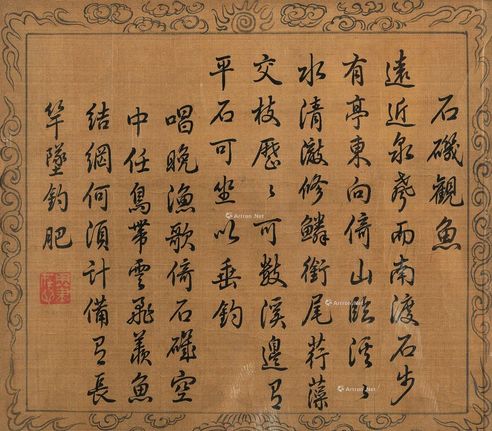 石磯觀魚
遠近泉聲而南渡石步
有亭東向倚山臨溪〻
水清澈修鱗銜尾荇藻
交枝歷〻可數溪邊有
平石可坐以垂釣
唱晚漁歌倚石磯空
中任鳥帶雲飛羨魚
結網何須計備有長
竿墜釣肥
Artron.Net
Artron.Net
Artron.Net